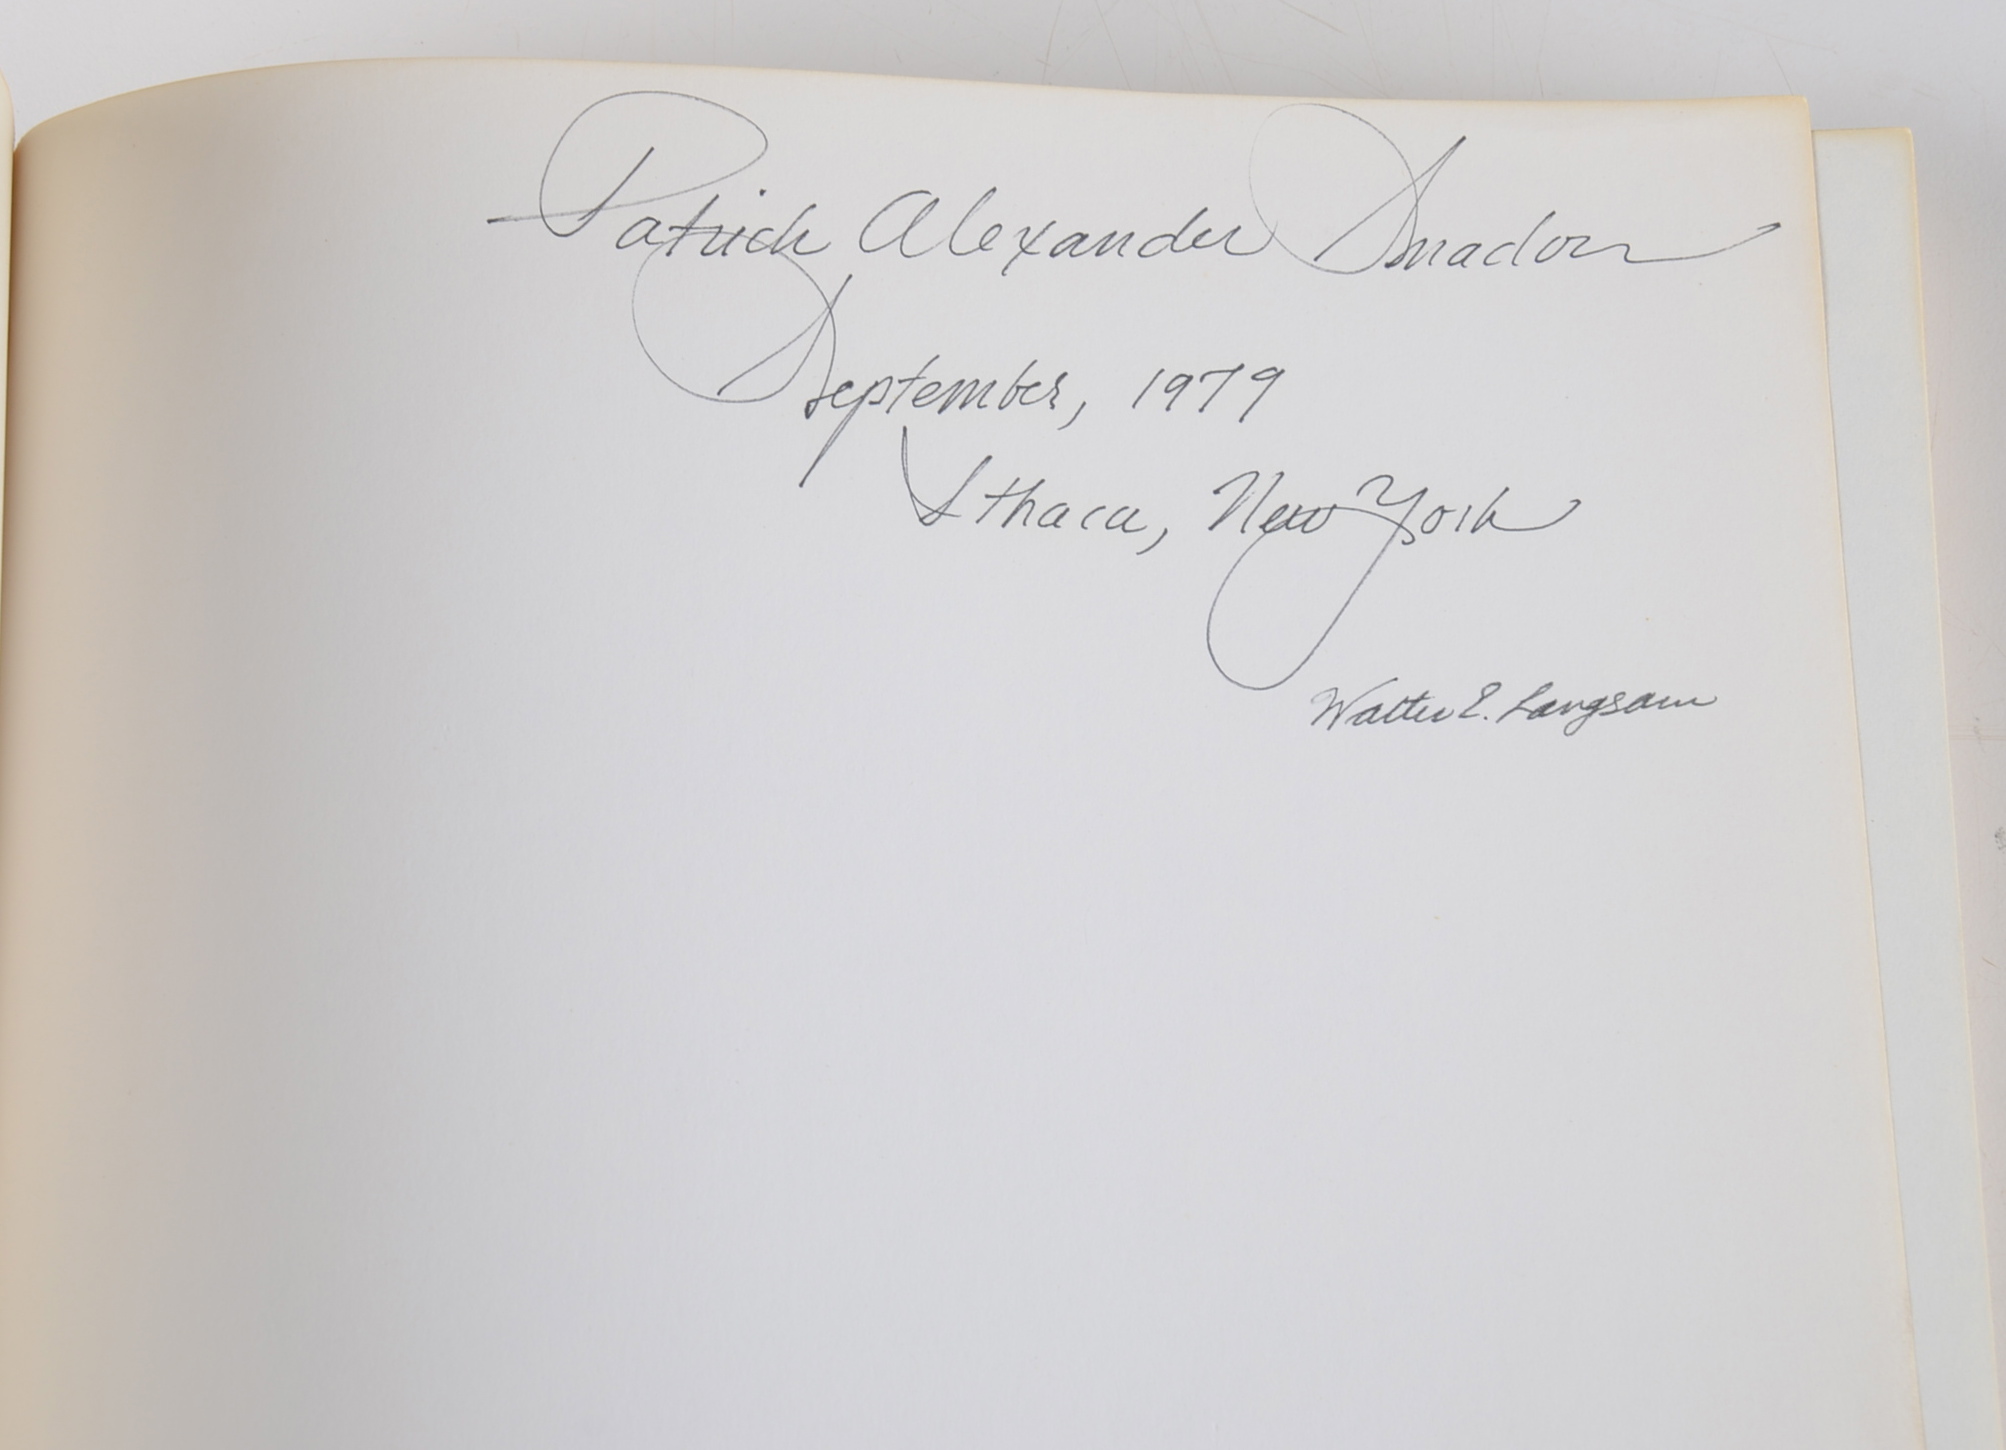 Patrick Alexander Snadon
September, 1979
Ithaca, New York
Walter E. Langsam